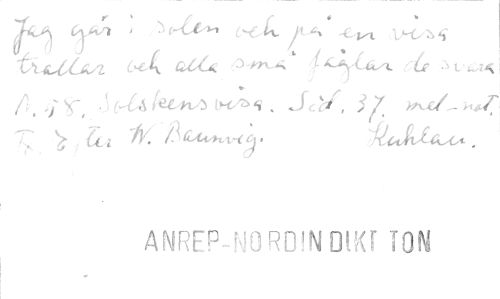 Jag går i solen och på en visa
trallar och alla små fåglar de svara
N. 58. Solskensvisa. Sid. 37. mel-not.
Efter W. Baunvig. Kuhlau.
ANREP-NORDIN DIKT TON